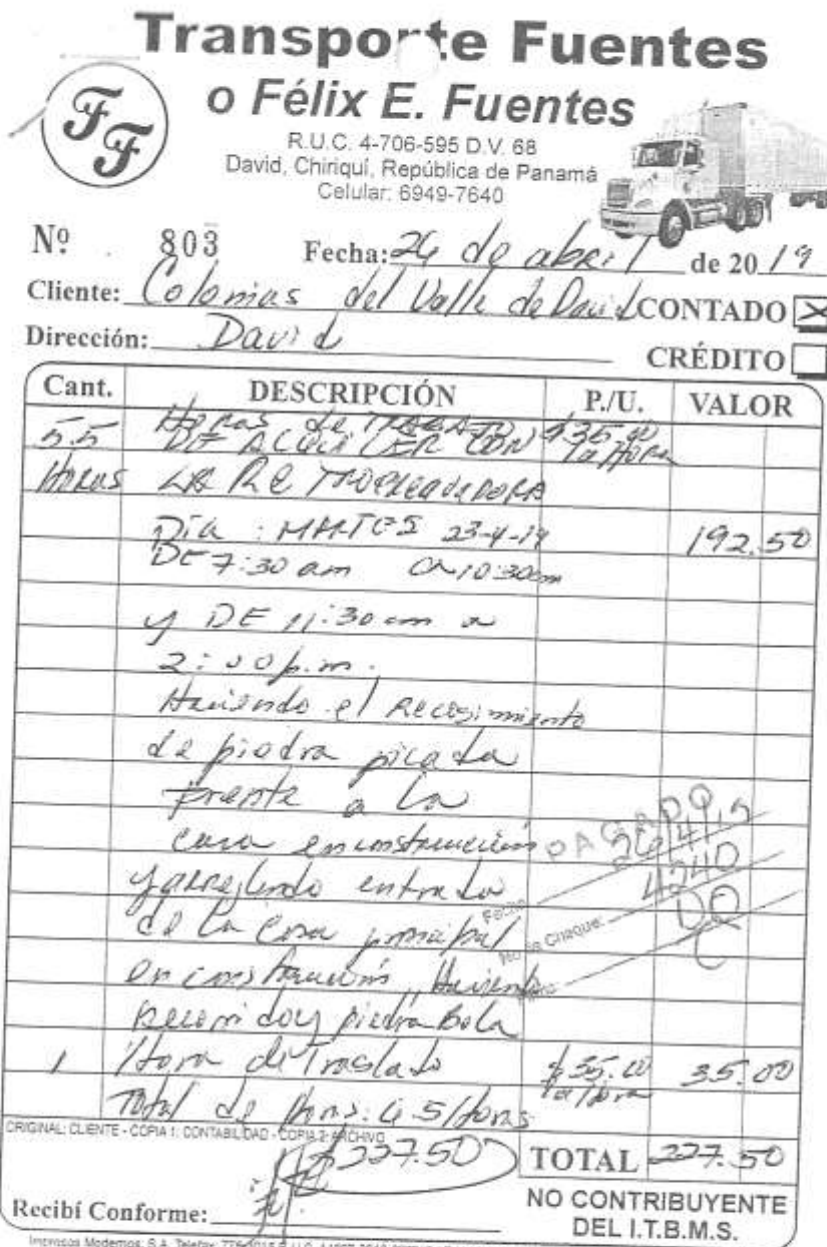 Transporte Fuentes
o Félix E. Fuentes
FF
R.U.C. 4-706-595 D.V. 68
David, Chiriquí, República de Panamá
Celular: 6949-7640
Nº 803 Fecha: 26 de abril de 2019
Cliente: Colonias del Valle de David CONTADO X
Dirección: David CRÉDITO
Cant. DESCRIPCIÓN P./U. VALOR
5.5 Horas de TRABAJO $35.00
DE ALQUILER CON la Hora
Horas LA
Día: MARTES 23-4-19 192.50
DE 7:30 am a 10:30am
y DE 11:30 am a
2:00 p.m.
Haciendo el Recogimiento
de piedra picada
frente a la
casa en construcción
y arreglando entrada
de la casa principal
en construcción, Haciendo
y piedra Bola
PAGADO
Fecha 26/4/19
No de Cheque: 4240
1 Hora de Traslado $35.00 35.00
la Hora
Total de Horas: 6.5 Horas
ORIGINAL: CLIENTE - COPIA 1: CONTABILIDAD - COPIA 2: ARCHIVO
$227.50 TOTAL 227.50
Recibí Conforme:
NO CONTRIBUYENTE
DEL I.T.B.M.S.
Impresos Modernos, S.A.